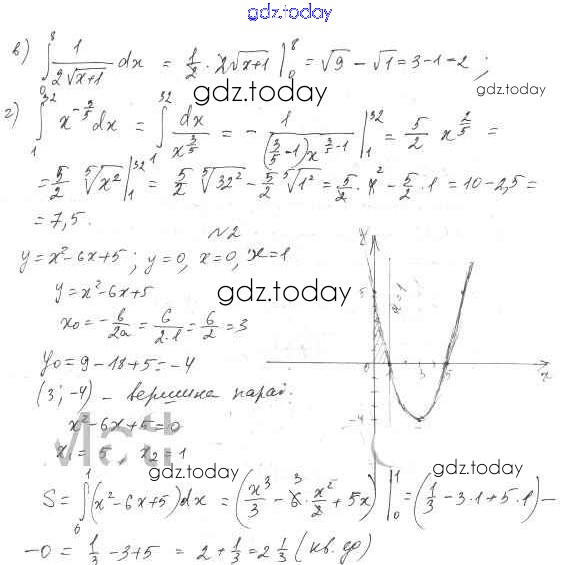 gdz.today
в) ∫₀⁸ 1/(2√(x+1)) dx = 1/2 · 2√(x+1) |₀⁸ = √9 − √1 = 3−1=2 ;
gdz.today
gdz.today
г) ∫₁³² x^(−3/5) dx = ∫₁³² dx/x^(3/5) = − 1/((3/5−1)x^(3/5−1)) |₁³² = 5/2 x^(2/5) =
= 5/2 ⁵√x² |₁³² = 5/2 ⁵√32² − 5/2 ⁵√1² = 5/2 · 4² − 5/2 · 1 = 10 − 2,5 =
= 7,5.
№2
y = x²−6x+5 ; y=0, x=0, x=1
y = x²−6x+5
gdz.today
x₀ = −b/2a = 6/(2·1) = 6/2 = 3
y₀ = 9−18+5 = −4
(3; −4) – вершина параб.
x²−6x+5=0
x = 5, x₂ = 1
y
5
x=1
0 1 3 5 x
−4
Math
gdz.today
gdz.today
S = ∫₀¹ (x²−6x+5)dx = (x³/3 − 6 · x²/2 + 5x) |₀¹ = (1/3 − 3·1 + 5·1) −
−0 = 1/3 −3+5 = 2+1/3 = 2 1/3 (кв. ед)
gdz.today